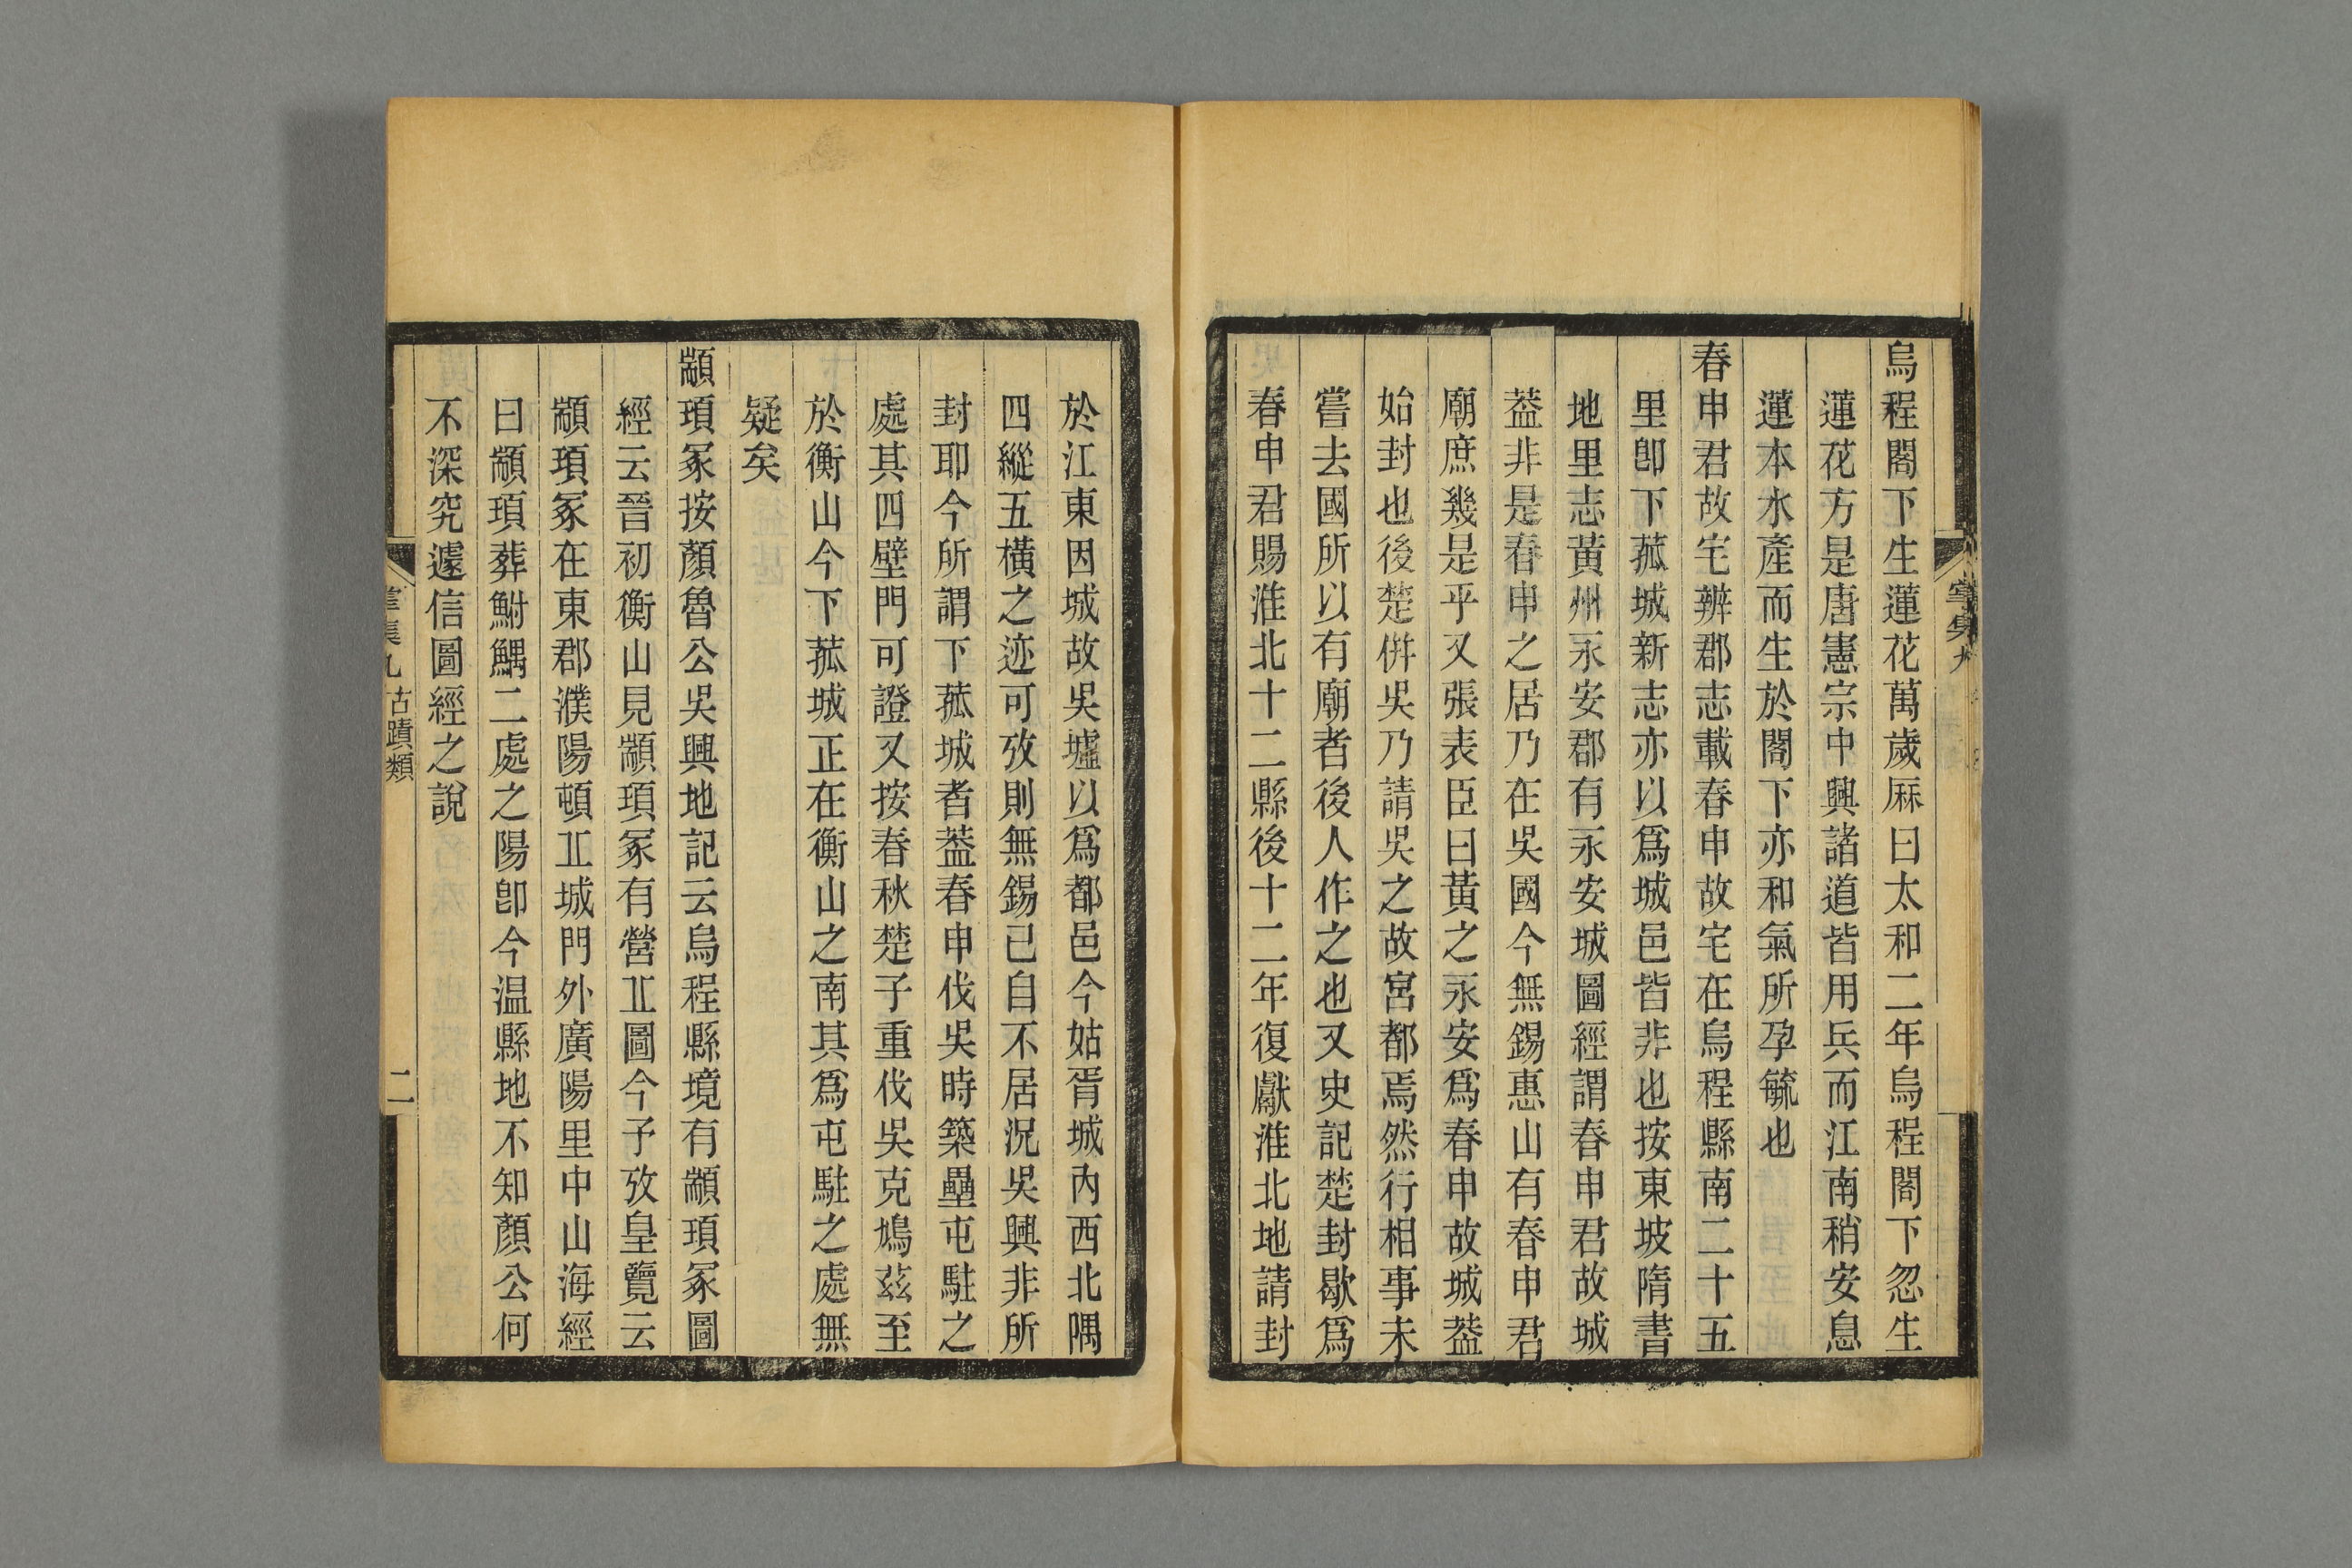 烏程閣下生蓮花萬歲厤曰太和二年烏程閣下忽生
蓮花方是唐憲宗中興諸道皆用兵而江南稍安息
蓮本水產而生於閣下亦和氣所孕毓也
春申君故宅辨郡志載春申故宅在烏程縣南二十五
里卽下菰城新志亦以爲城邑皆非也按東坡隋書
地里志黃州永安郡有永安城圖經謂春申君故城
葢非是春申之居乃在吳國今無錫惠山有春申君
廟庶幾是乎又張表臣曰黃之永安爲春申故城葢
始封也後楚併吳乃請吳之故宮都焉然行相事未
嘗去國所以有廟者後人作之也又史記楚封歇爲
春申君賜淮北十二縣後十二年復獻淮北地請封
於江東因城故吳墟以爲都邑今姑胥城內西北隅
四縱五橫之迹可攷則無錫已自不居況吳興非所
封耶今所謂下菰城者葢春申伐吳時築壘屯駐之
處其四壁門可證又按春秋楚子重伐吳克鳩茲至
於衡山今下菰城正在衡山之南其爲屯駐之處無
疑矣
顓頊冢按顏魯公吳興地記云烏程縣境有顓頊冢圖
經云晉初衡山見顓頊冢有營丠圖今予攷皇覽云
顓頊冢在東郡濮陽頓丠城門外廣陽里中山海經
曰顓頊葬鮒鰅二處之陽卽今温縣地不知顏公何
不深究遽信圖經之說
掌集九 古蹟類
二